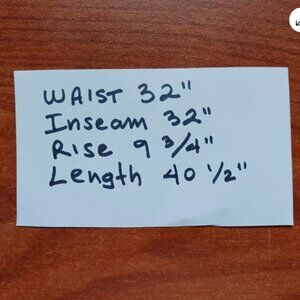 WAIST 32"
Inseam 32"
Rise 9 3/4"
Length 40 1/2"